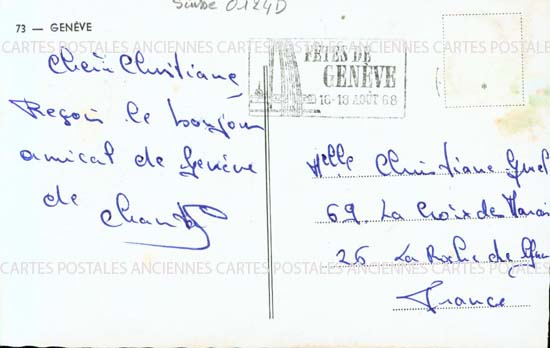 Suisse 0124D
73 — GENÈVE
CARTES POSTALES ANCIENNES CARTES POSTALES ANCIENNES CARTES POSTALES ANCIENNES
FÊTES DE
GENÈVE
16-18 AOÛT 68
Chère Christiane
Reçois le bonjour
amical de Genève
de
Chantal
Melle Christiane
69 La Croix de
26 La Roche de
France
CARTES POSTALES ANCIENNES CARTES POSTALES ANCIENNES CARTES POSTALES ANCIENNES